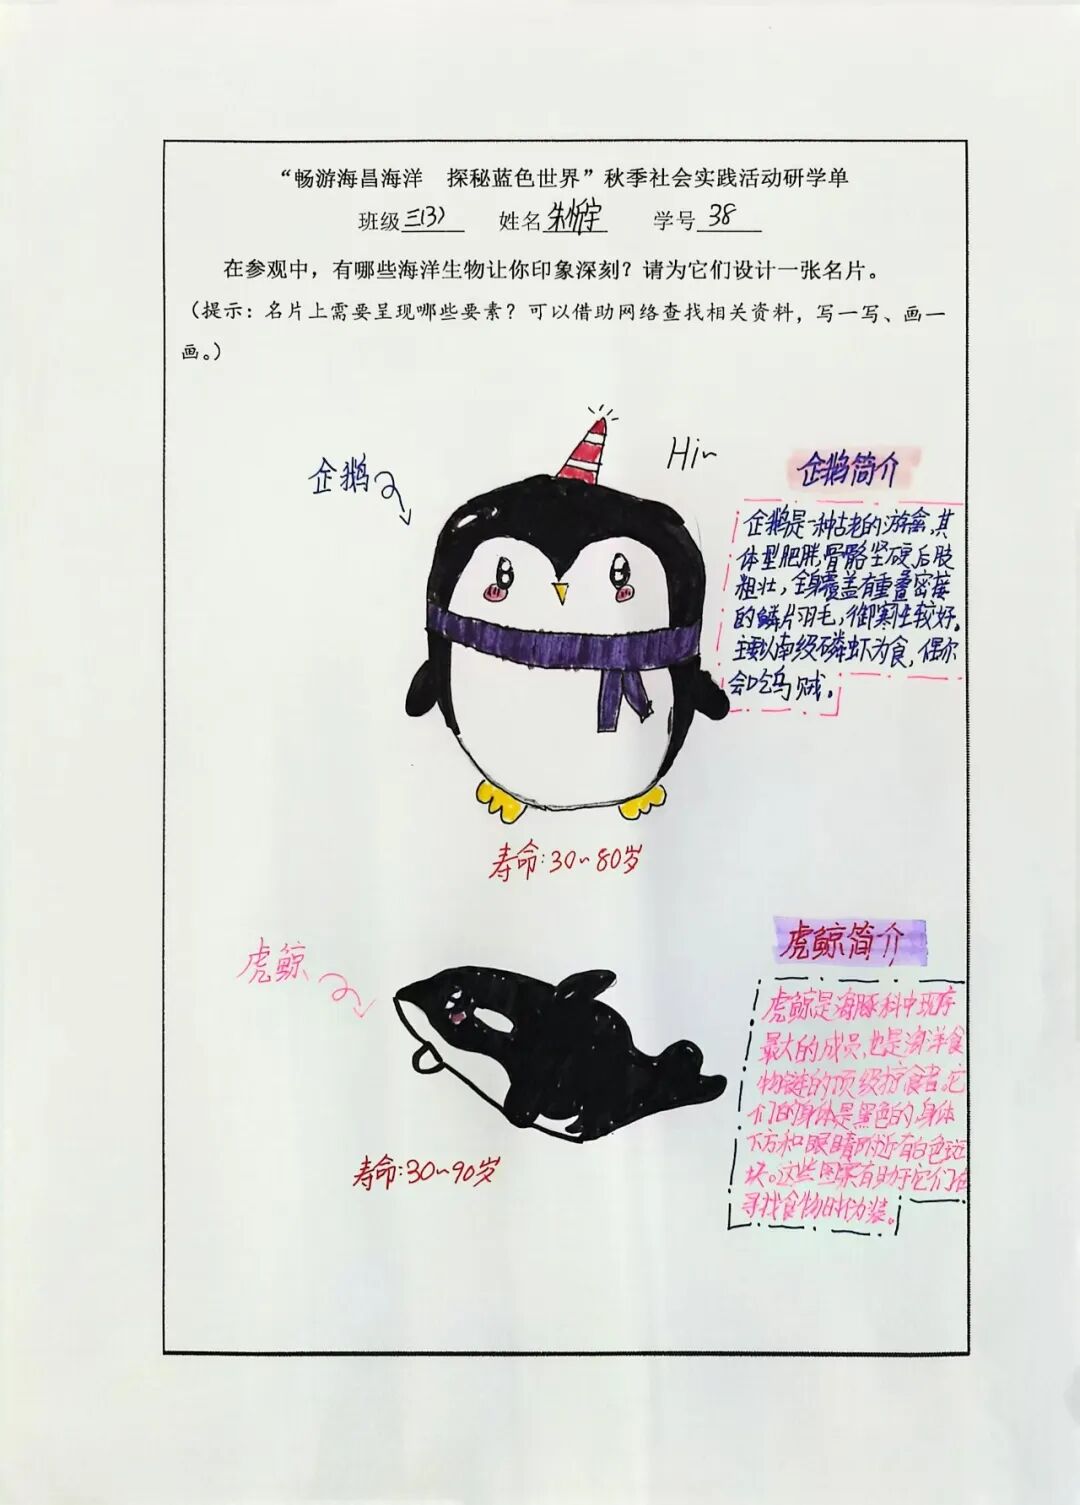 “畅游海昌海洋　探秘蓝色世界”秋季社会实践活动研学单
班级三(3)　姓名朱忻宇　学号38
在参观中，有哪些海洋生物让你印象深刻？请为它们设计一张名片。
（提示：名片上需要呈现哪些要素？可以借助网络查找相关资料，写一写、画一
画。）
Hi~
企鹅
企鹅简介
企鹅是一种古老的游禽，其
体型肥胖，骨骼坚硬，后肢
粗壮，全身覆盖有重叠密接
的鳞片羽毛，御寒性较好。
主要以南极磷虾为食，偶尔
会吃乌贼。
寿命：30~80岁
虎鲸
虎鲸简介
虎鲸是海豚科中现存
最大的成员，也是海洋食
物链的顶级掠食者。它
们的身体是黑色的，身体
下方和眼睛附近有白色斑
块。这些图案有助于它们在
寻找食物时伪装。
寿命：30~90岁